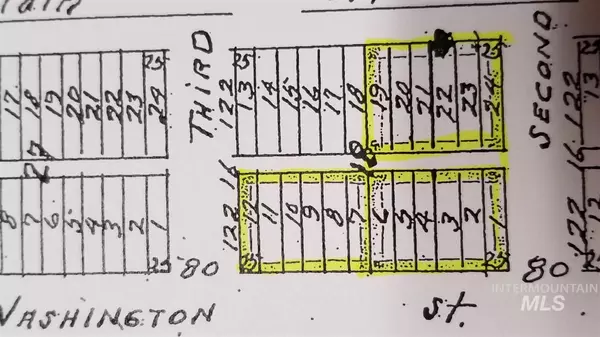 THIRD
SECOND
25
25
25
122
13
14
15
16
17
18
19
20
21
22
23
24
122
13
17
18
19
20
21
22
23
24
27
16
16
8
7
6
5
4
3
2
1
122
12
11
10
9
8
7
6
5
4
3
2
1
122
12
25
80
25
25
80
WASHINGTON
St.
INTERMOUNTAIN
MLS